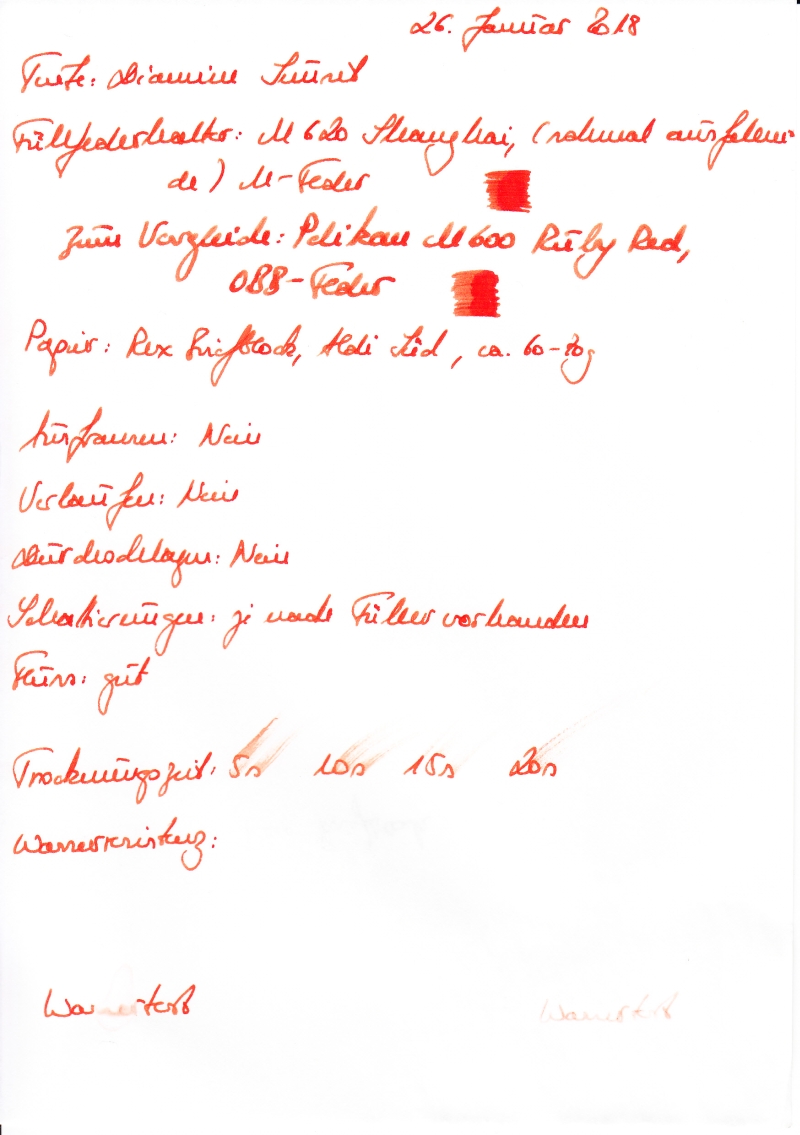 26. Januar 2018
Tinte: Diamine Sunset
Füllfederhalter: M 620 Shanghai, (nahmal ausfallen-
de) M-Feder
zum Vergleich: Pelikan M600 Ruby Red,
OBB-Feder
Papier: Rex Briefblock, Aldi Süd, ca. 60-70g
Ausfransen: Nein
Verlaufen: Nein
Durchschlagen: Nein
Schattierungen: je nach Füller vorhanden
Fluss: gut
Trocknungszeit: 5s 10s 15s 20s
Wasserresistenz:
Wassertest Wassertest